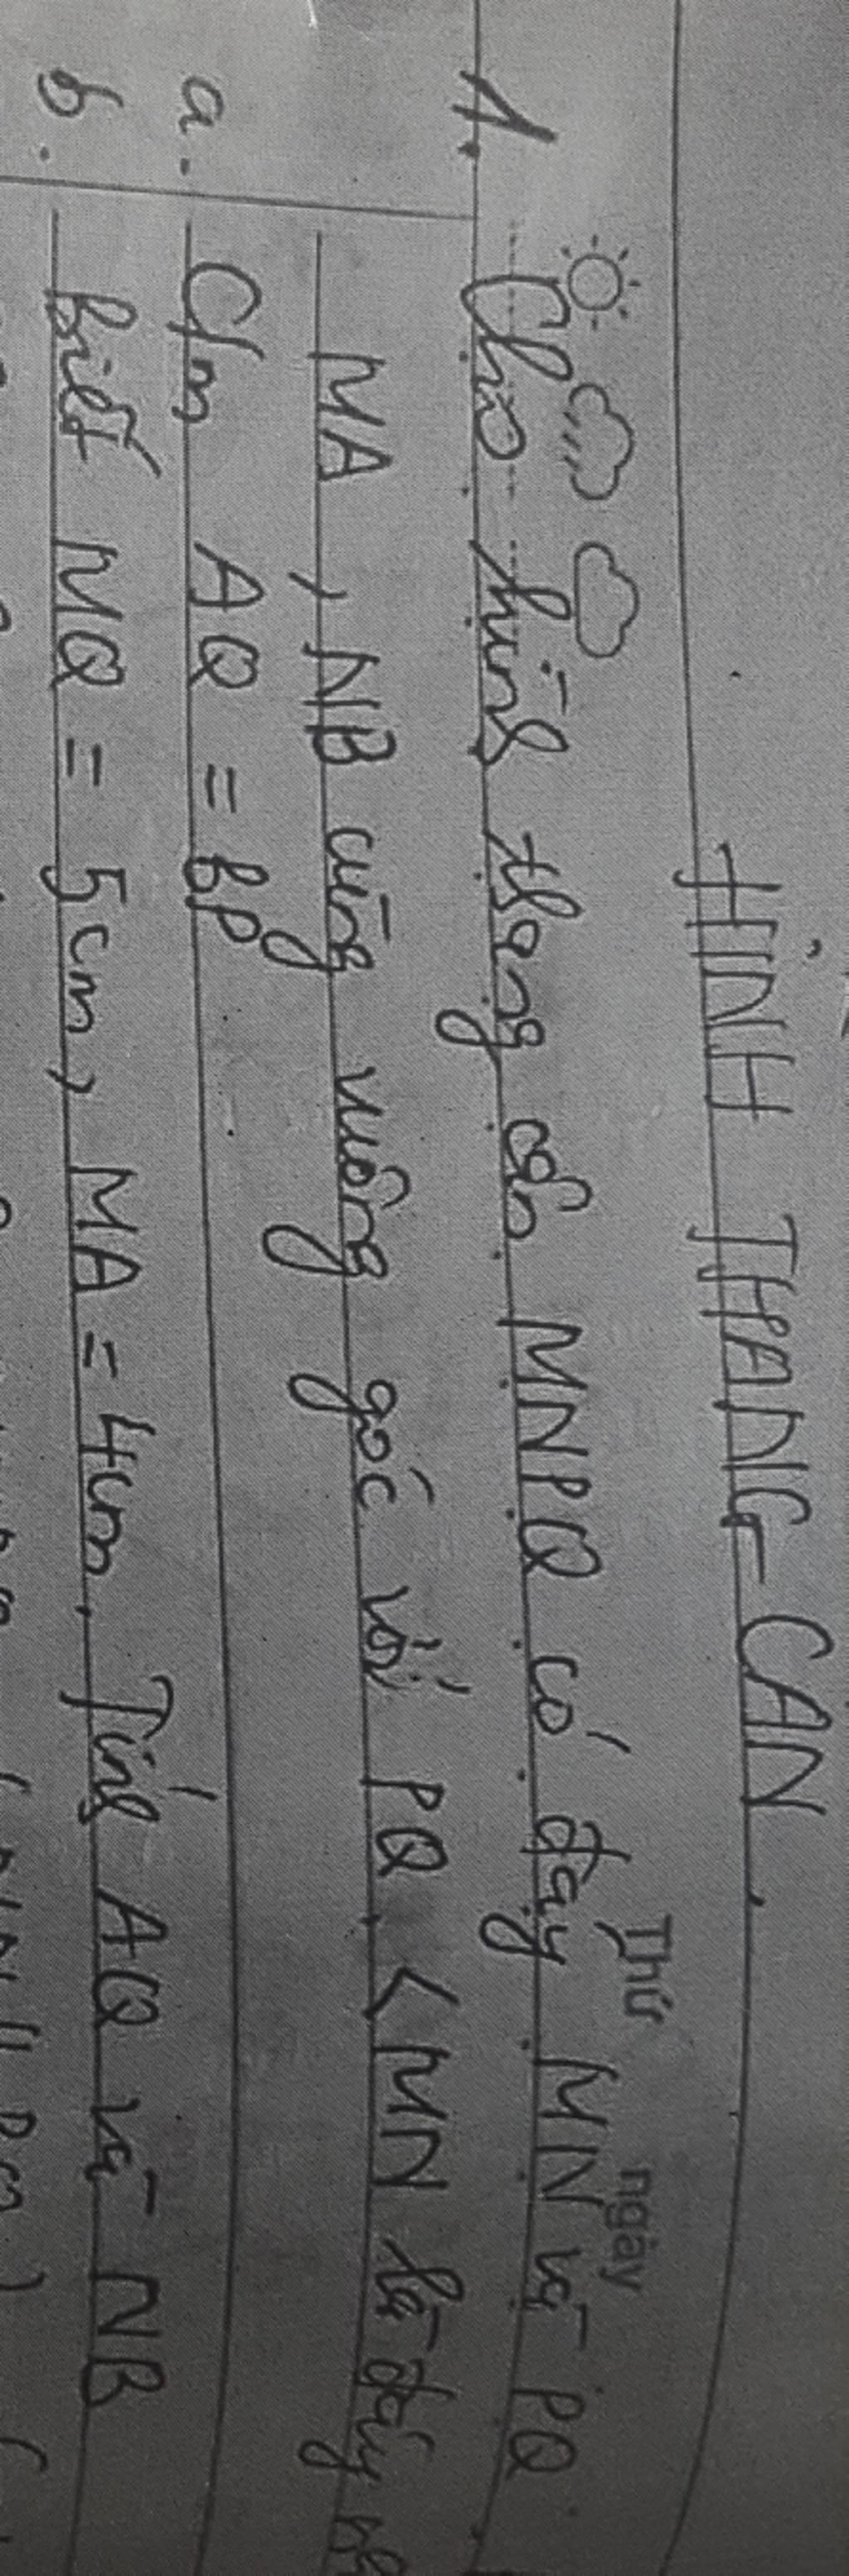 HÌNH THANG CÂN.
Thứ ngày
1. Cho hình thang cân MNPQ có đáy MN và PQ
MA, NB cùng vuông góc với PQ. (MN là đáy
a. C/m AQ = BP
b. Biết MQ = 5cm, MA = 4cm. Tính AQ và NB